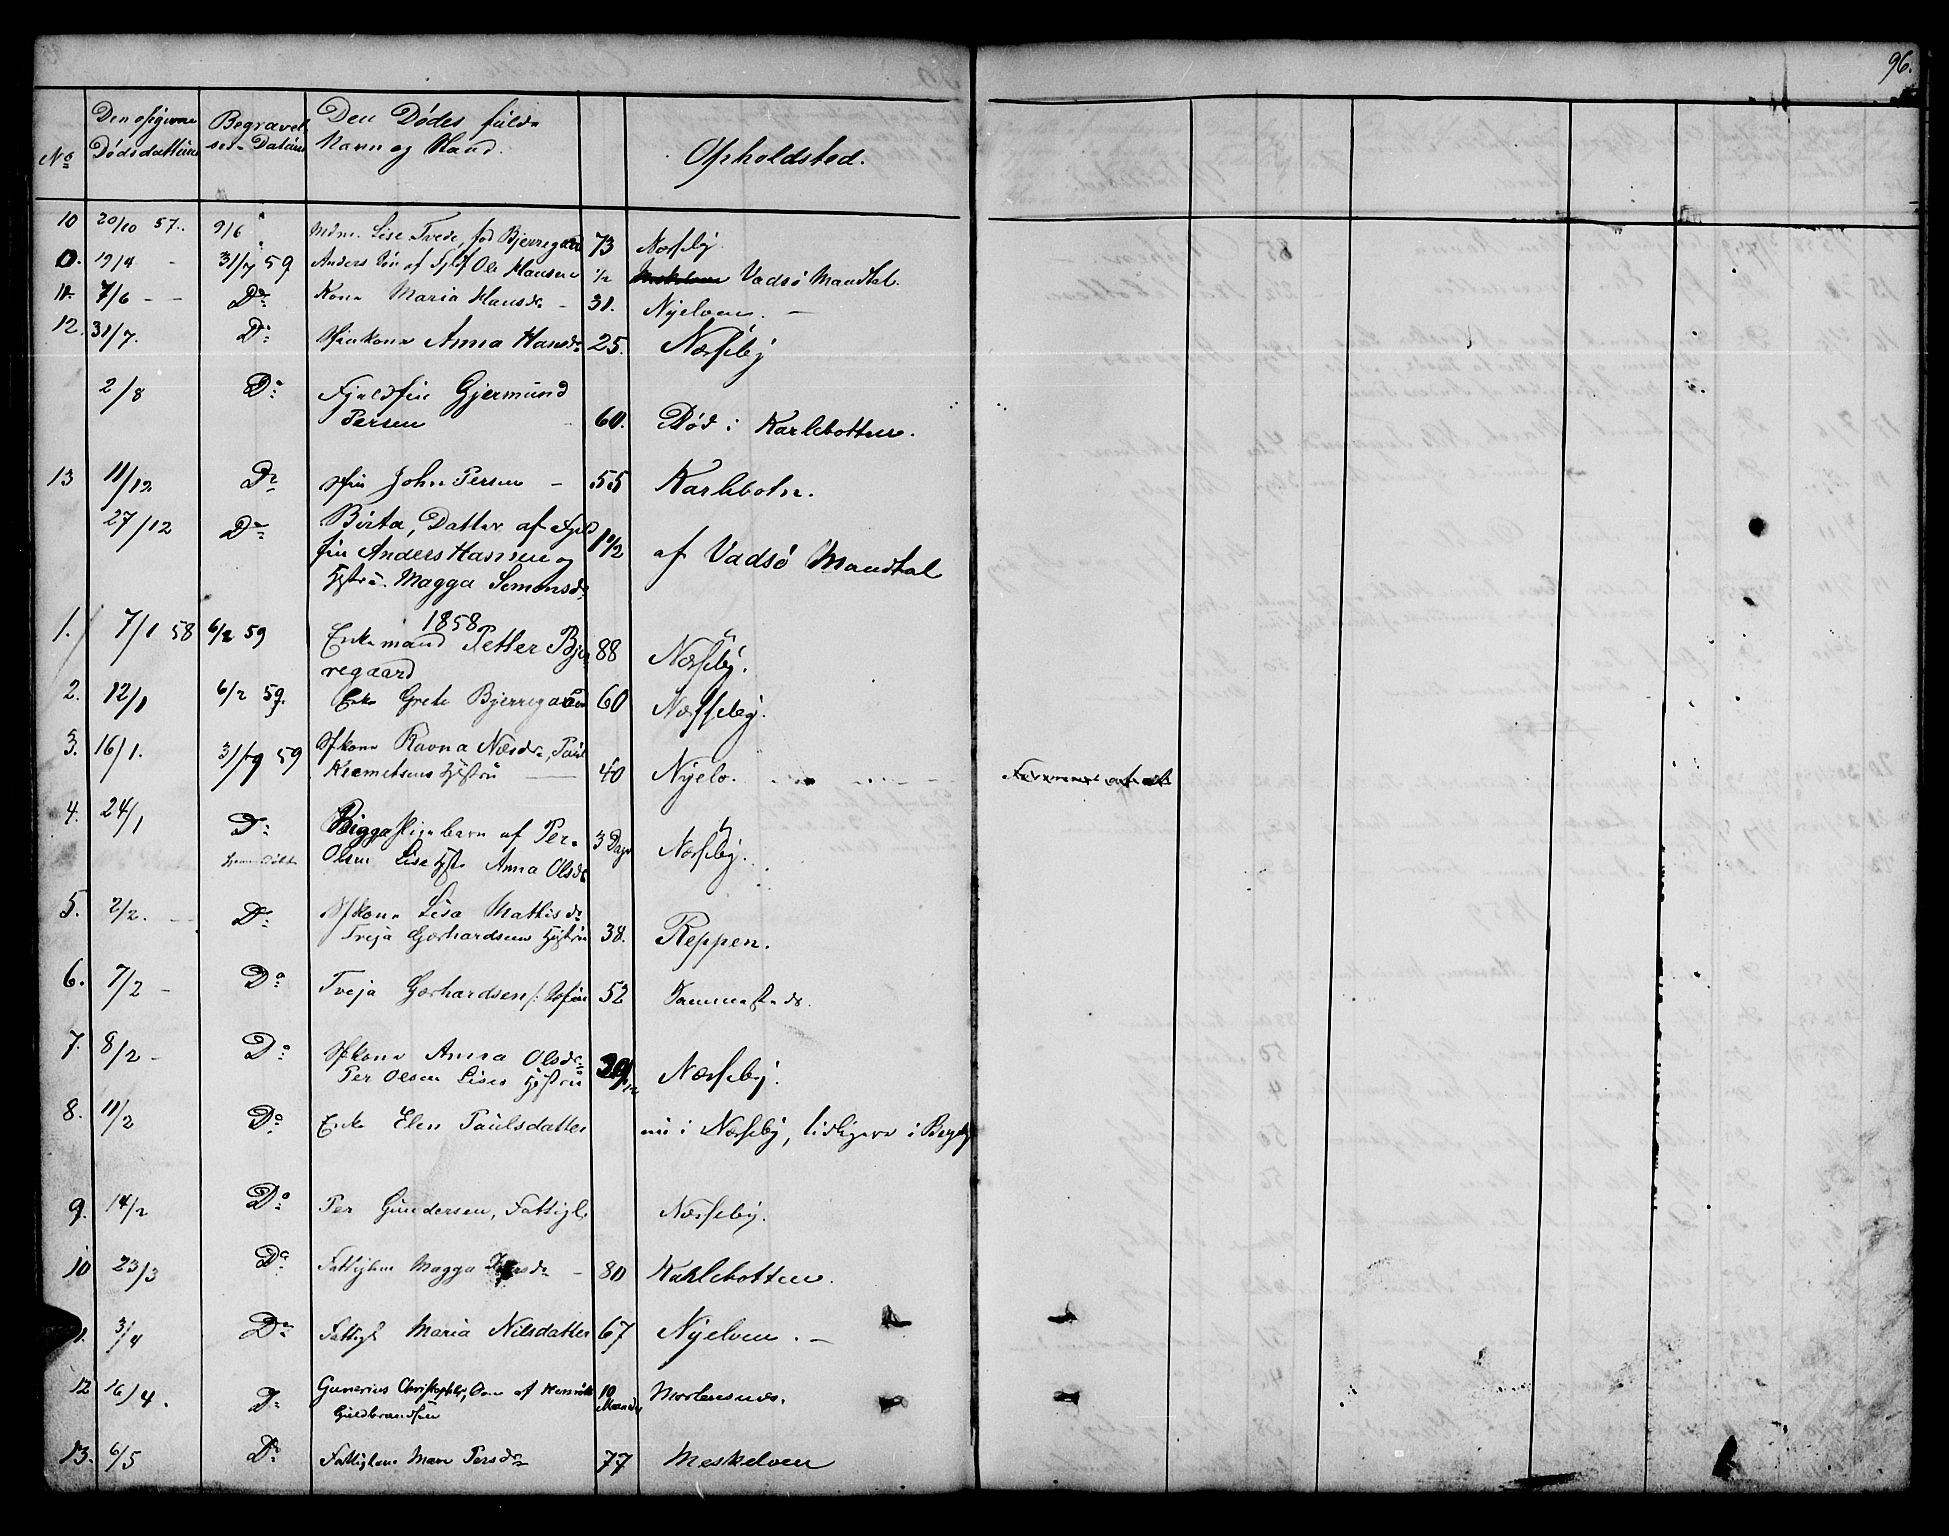 96.
No Den opgivne Dødsdattum Begravelses Datum Den Dødes fulde Navn og Stand. Opholdsted.
10 20/10 57. 9/6 Mdme. Lise Tvede, fød Bjerregaard 73 Næsseby.
0. 19/4 - 31/7 59 Anders Søn af Fjlf Ole Hansen 1/2 Vadsö Mandtal.
11. 7/6 - - Do Kone Maria Hansdr - 31. Nyelven. -
12. 31/7. Do Sfinkone Anna Hansdr 25. Næsseby
2/8 Do Fjeldfin Gjermund
Persen 60. Död i Karlebotten.
13 11/12 Do Sfin John Persen - 55 Karlebotn.
27/12 Do Birta, Datter af Fjeld
fin Anders Hansen og 1 1/2 af Vadsö Mandtal
Hustru Magga Semonsdr
1858
1. 7/1 58 6/2 59 Enkemand Petter Bjer
regaard 88 Næsseby.
2. 12/1 6/2 59. Enke Grete Bjerregaard 60 Næsseby.
3. 16/1. 31/7 59 Sfkone Ravna Nilsdr, Paul
Klemetsens Hustru 40 Nyelv.
4. 24/1 Do Bigga Pigebarn af Per
Olsen Lise Hst Anna Olsdr 3 Dage Næsseby.
5. 2/2. - Do Sfkone Lisa Mathisdr
Treja Gerhardsens Hustru 38. Reppen.
6. 7/2 - Do Treja Gerhardsen /: Sfin 52
7. 8/2 - Do Sfkone Anna Olsdr
Per Olsen Lises Hustru Næsseby.
8. 11/2 Do Enke Elen Paulsdatter nu i Næsseby, tidligere i Bergeby
9. 14/2 Do Per Gundersen, Fattigl. Næsseby.
10 23/3 Do Fattiglem Magga - 80 Karlebotten.
3/4 Do Fattigl Maria Nilsdatter 67 Nyelven. -
12 16/4. Do Gunerius Christopher, Søn af Henrik
Guldbrandsen 10 Maaneder Mortensnæs.
13. 6/5 Do Fattiglem Mare Persdr 77 Meskelven